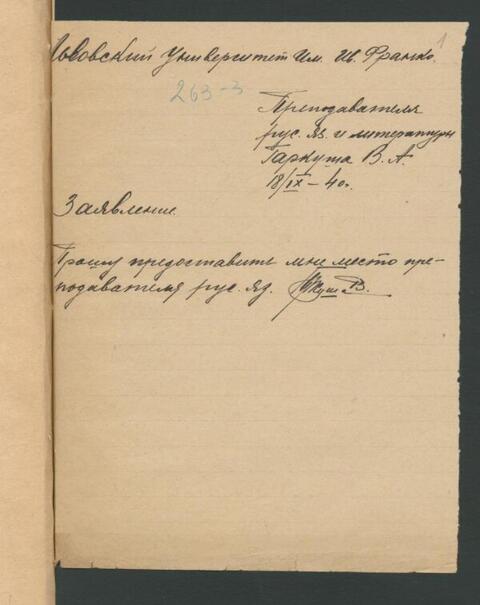 Львовский Университет Им. Ив. Франко.
1
263-3
Преподавателя
рус. яз. и литературы
Гаркуша В. А.
18/IX – 40г.
Заявление.
Прошу предоставить мне место пре-
подавателя рус. яз.